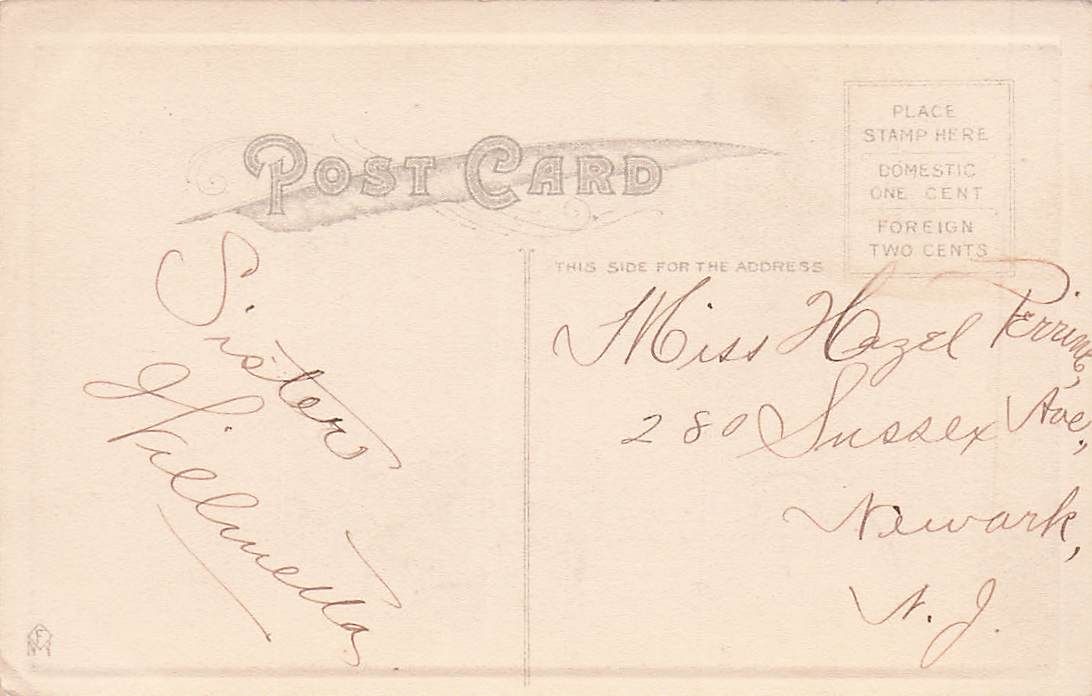 POST CARD
PLACE
STAMP HERE
DOMESTIC
ONE CENT
FOREIGN
TWO CENTS
THIS SIDE FOR THE ADDRESS
Sister
Wilmetta
Miss Hazel Perrine,
280 Sussex Ave,
Newark,
N. J.